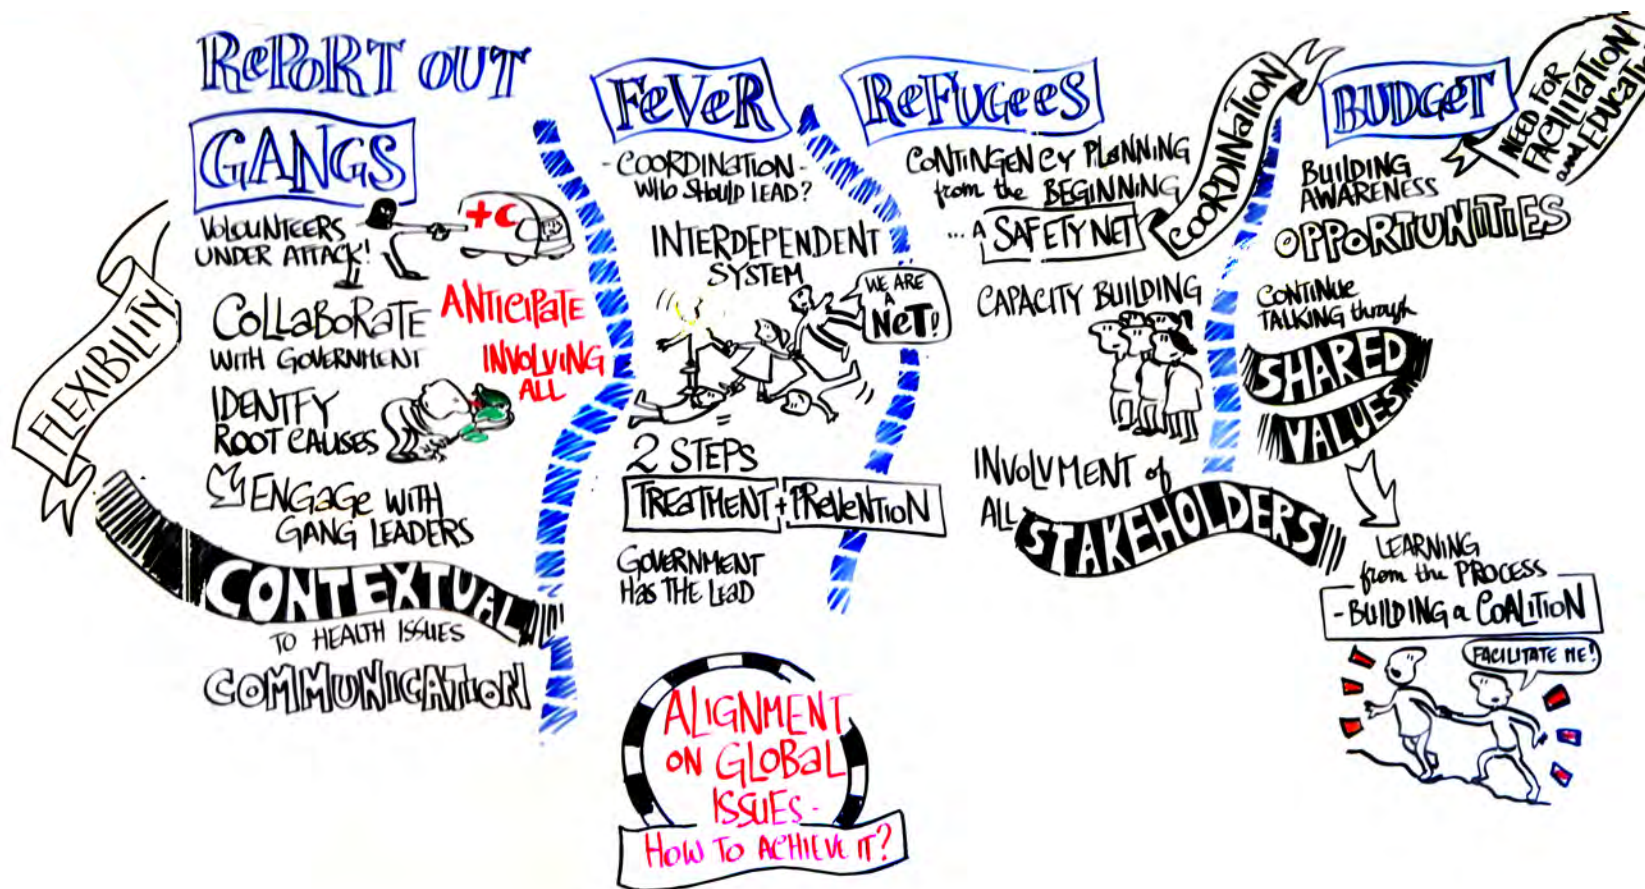 RePORT OUT
GANGS
VOLOUNTEERS
UNDER ATTACK!
+C
COLLaBORaTE
WITH GOVERNMENT
ANTICIPATE
INVOLVING
ALL
IDENTFY
ROOT CAUSES
ENGAGe WITH
GANG LEADERS
FLEXIBILITY
CONTEXTUAL
TO HEALTH ISSUES
COMMUNICATION
FeVeR
- COORDINATION -
WHO SHOULD LEAD?
INTERDEPENDENT
SYSTEM
WE ARE
A
NeT!
2 STEPS
TREATMENT + PReVENTION
GOVERNMENT
HaS THE LEaD
ALIGNMENT
ON GLOBaL
ISSUES -
HOW TO ACHIEVE IT?
ReFUGeeS
CONTINGENCY PLaNNING
from the BEGINNING
... A SAFETY NET
COORDINaTION
CAPACITY BUILDING
INVOLVMENT of
ALL STAKEHOLDERS
BUDGeT
NEED FOR
FACILITATION
and EDUCATI
BUILDING
AWARENESS
OPPORTUNITIES
CONTINUE
TALKING through
SHARED
VALUES
LEARNING
from the PROCESS
- BUILDING a COALITION
FACILITATE ME!